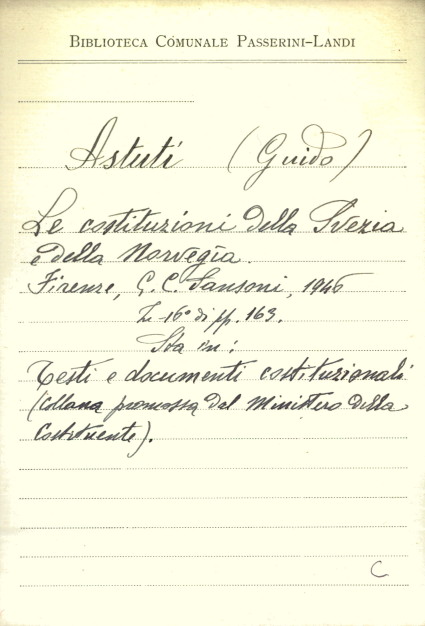 Biblioteca Comunale Passerini-Landi
Astuti (Guido)
Le costituzioni della Svezia
e della Norvegia.
Firenze, G. C. Sansoni, 1946
In 16° di pp. 163.
Sta in:
Testi e documenti costituzionali
(Collana promossa dal Ministero della
Costituente).
C